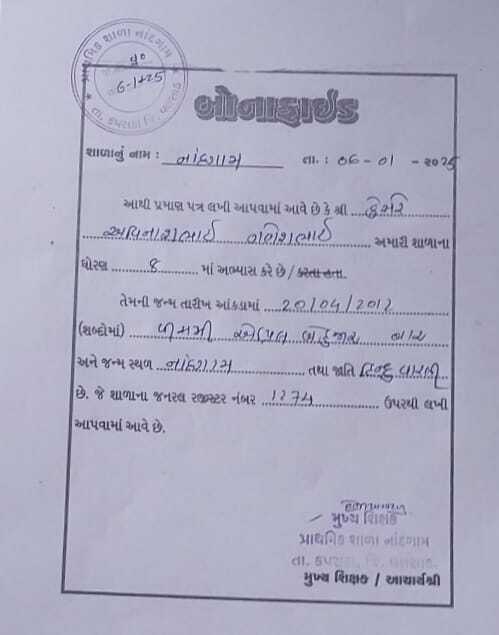 પ્રાથમિક શાળા નાંદગામ
તા. કપરાડા જિ. વલસાડ
બોનાફાઈડ
શાળાનું નામ : નાંદગામ તા. : ૦6 - ૦1 - ૨૦૨5
આથી પ્રમાણ પત્ર લખી આપવામાં આવે છે કે શ્રી ....
અવિનાશભાઈ ગણેશભાઈ અમારી શાળાના
ધોરણ ........8........ માં અભ્યાસ કરે છે / કરતા હતા.
તેમની જન્મ તારીખ આંકડામાં ....20/04/2012
(શબ્દોમાં) વીસમી એપ્રિલ બે હજાર બાર
અને જન્મ સ્થળ ...નાંદગામ............ તથા જાતિ હિન્દુ વારલી
છે. જે શાળાના જનરલ રજીસ્ટર નંબર ...1274.................. ઉપરથી લખી
આપવામાં આવે છે.
મુખ્ય શિક્ષક
પ્રાથમિક શાળા નાંદગામ
તા. કપરાડા, જિ. વલસાડ.
મુખ્ય શિક્ષક / આચાર્યશ્રી